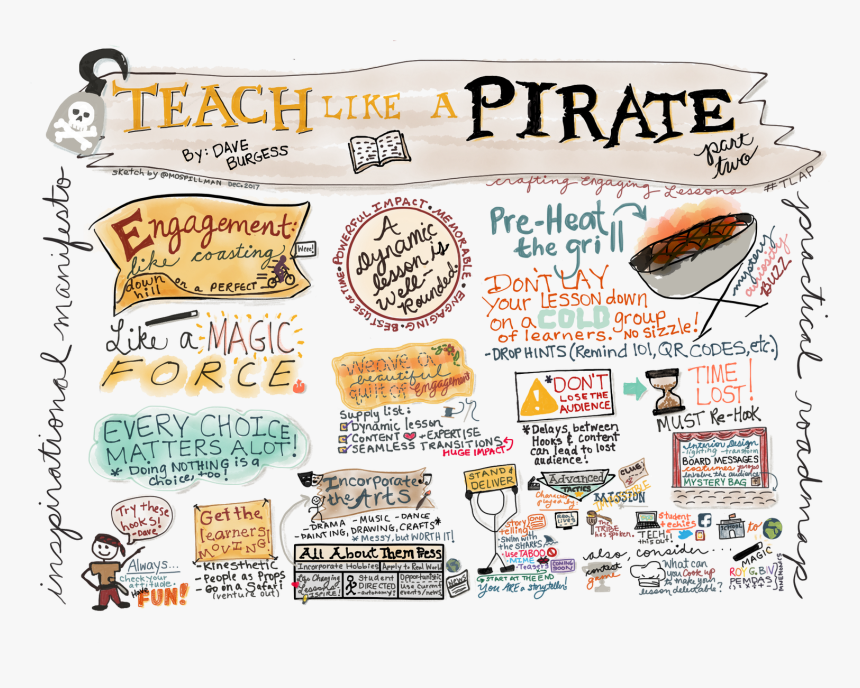 TEACH LIKE A PIRATE
By: DAVE
BURGESS
part
two
sketch by @MOSPILLMAN DEC. 2017
crafting Engaging Lessons
#TLAP
inspirational manifesto
practical roadmap
Engagement:
like coasting
down
hill
on a PERFECT
Wee!
POWERFUL IMPACT • MEMORABLE • ENGAGING • BEST USE OF TIME •
A
Dynamic
lesson is
Well-
Rounded:
Pre-Heat
the grill
DON'T LAY
your LESSON down
on a COLD group
of learners. *NO SIZZLE!
-DROP HINTS (Remind 101, QR CODES, etc.)
mystery
curiosity
BUZZ
Like a MAGIC
FORCE
Weave a
beautiful
quilt of engagement
Supply list:
Dynamic lesson
CONTENT EXPERTISE
SEAMLESS TRANSITIONS
HUGE IMPACT
*DON'T
LOSE THE
AUDIENCE
*Delays between
Hooks & content
can lead to lost
audience!
TIME
LOST!
MUST Re-Hook
EVERY CHOICE
MATTERS A LOT!
* Doing NOTHING is a
choice, too!
Interior Design
-lighting -transform
BOARD MESSAGES
costumes props
involve the audience
MYSTERY BAG
Try these
hooks!
-Dave
Always...
check your
attitude.
Have
FUN!
Get the
learners
MOVING!
-Kinesthetic
-People as Props
-Go on a Safari
(venture out)
Incorporate
the Arts
-DRAMA -MUSIC -DANCE
-PAINTING, DRAWING, CRAFTS*
*Messy, but WORTH IT!
All About Them Pess
Incorporate Hobbies
Apply to Real World
Life Changing
Lessons
INSPIRE!
Student
DIRECTED
-autonomy!
Opportunistic
Use current
events/news
NEWS
STAND &
DELIVER
story
telling
Swim with
the SHARKS
-use TABOO
-MIME
-Teasers
COMING
SOON!
START AT THE END
You ARE a storyteller!
Advanced
TACTICS
CLUB
MISSION
IMPOSSIBLE
THE
TRIBE
has spoken.
student
techies
TECH
this out!
School
to
also, consider...
contest
game
What can
you cook up
to make your
lesson delectable?
MAGIC
ROY G. BIV
PEMDAS
MNEMONICS